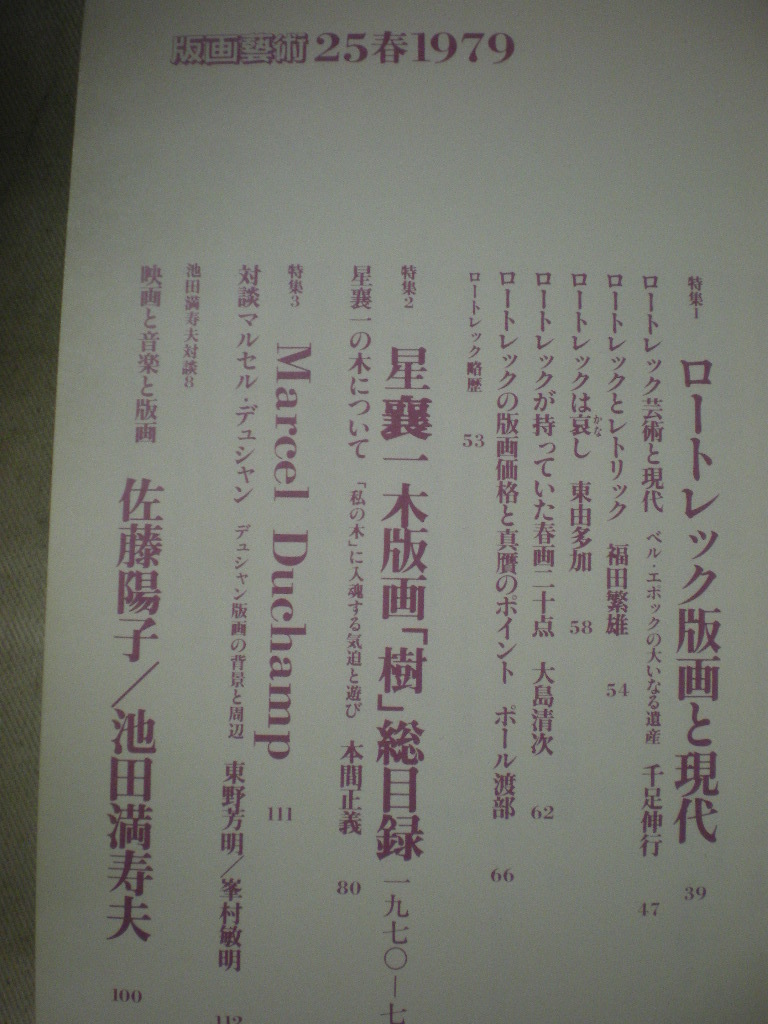 版画藝術25春1979
特集1
ロートレック版画と現代 39
ロートレック芸術と現代 ベル・エポックの大いなる遺産 千足伸行 47
ロートレックとレトリック 福田繁雄 54
ロートレックは哀し 東由多加 58
かな
ロートレックが持っていた春画二十点 大島清次 62
ロートレックの版画価格と真贋のポイント ポール渡部 66
ロートレック略歴 53
特集2
星襄一木版画「樹」総目録 一九七〇―七
星襄一の木について 「私の木」に入魂する気迫と遊び 本間正義 80
特集3
Marcel Duchamp 111
対談マルセル・デュシャン デュシャン版画の背景と周辺 東野芳明／峯村敏明 112
池田満寿夫対談8
映画と音楽と版画 佐藤陽子／池田満寿夫 100